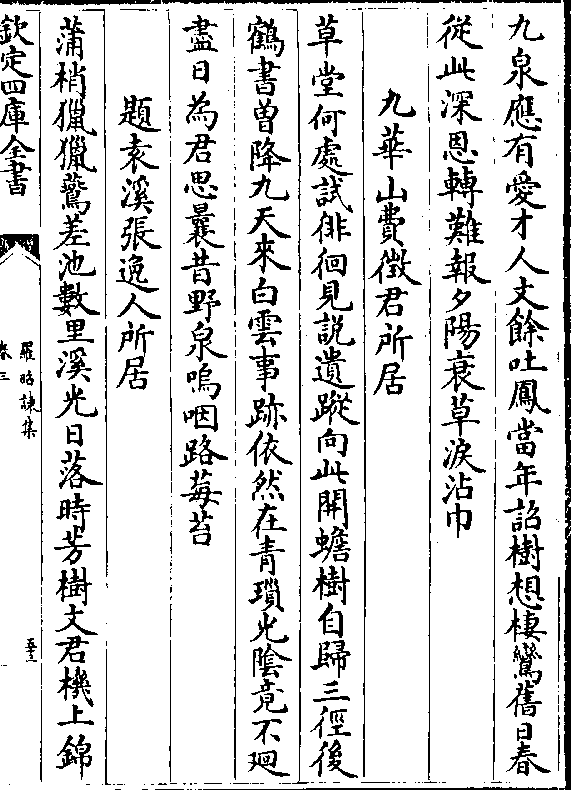 九泉應有愛才人文餘吐鳳當年詔樹想棲鸞舊日春
從此深恩轉難報夕陽衰草淚沾巾
九華山費徵君所居
草堂何處試徘徊見説遺蹤向此開蟾樹自歸三徑後
鶴書曽降九天來白雲事跡依然在青瑣光隂竟不廻
盡日為君思曩昔野泉嗚咽路莓苔
題袁溪張逸人所居
蒲梢獵獵鷰差池數里溪光日落時芳樹文君機上錦
欽定四庫全書
羅昭諫集
卷三